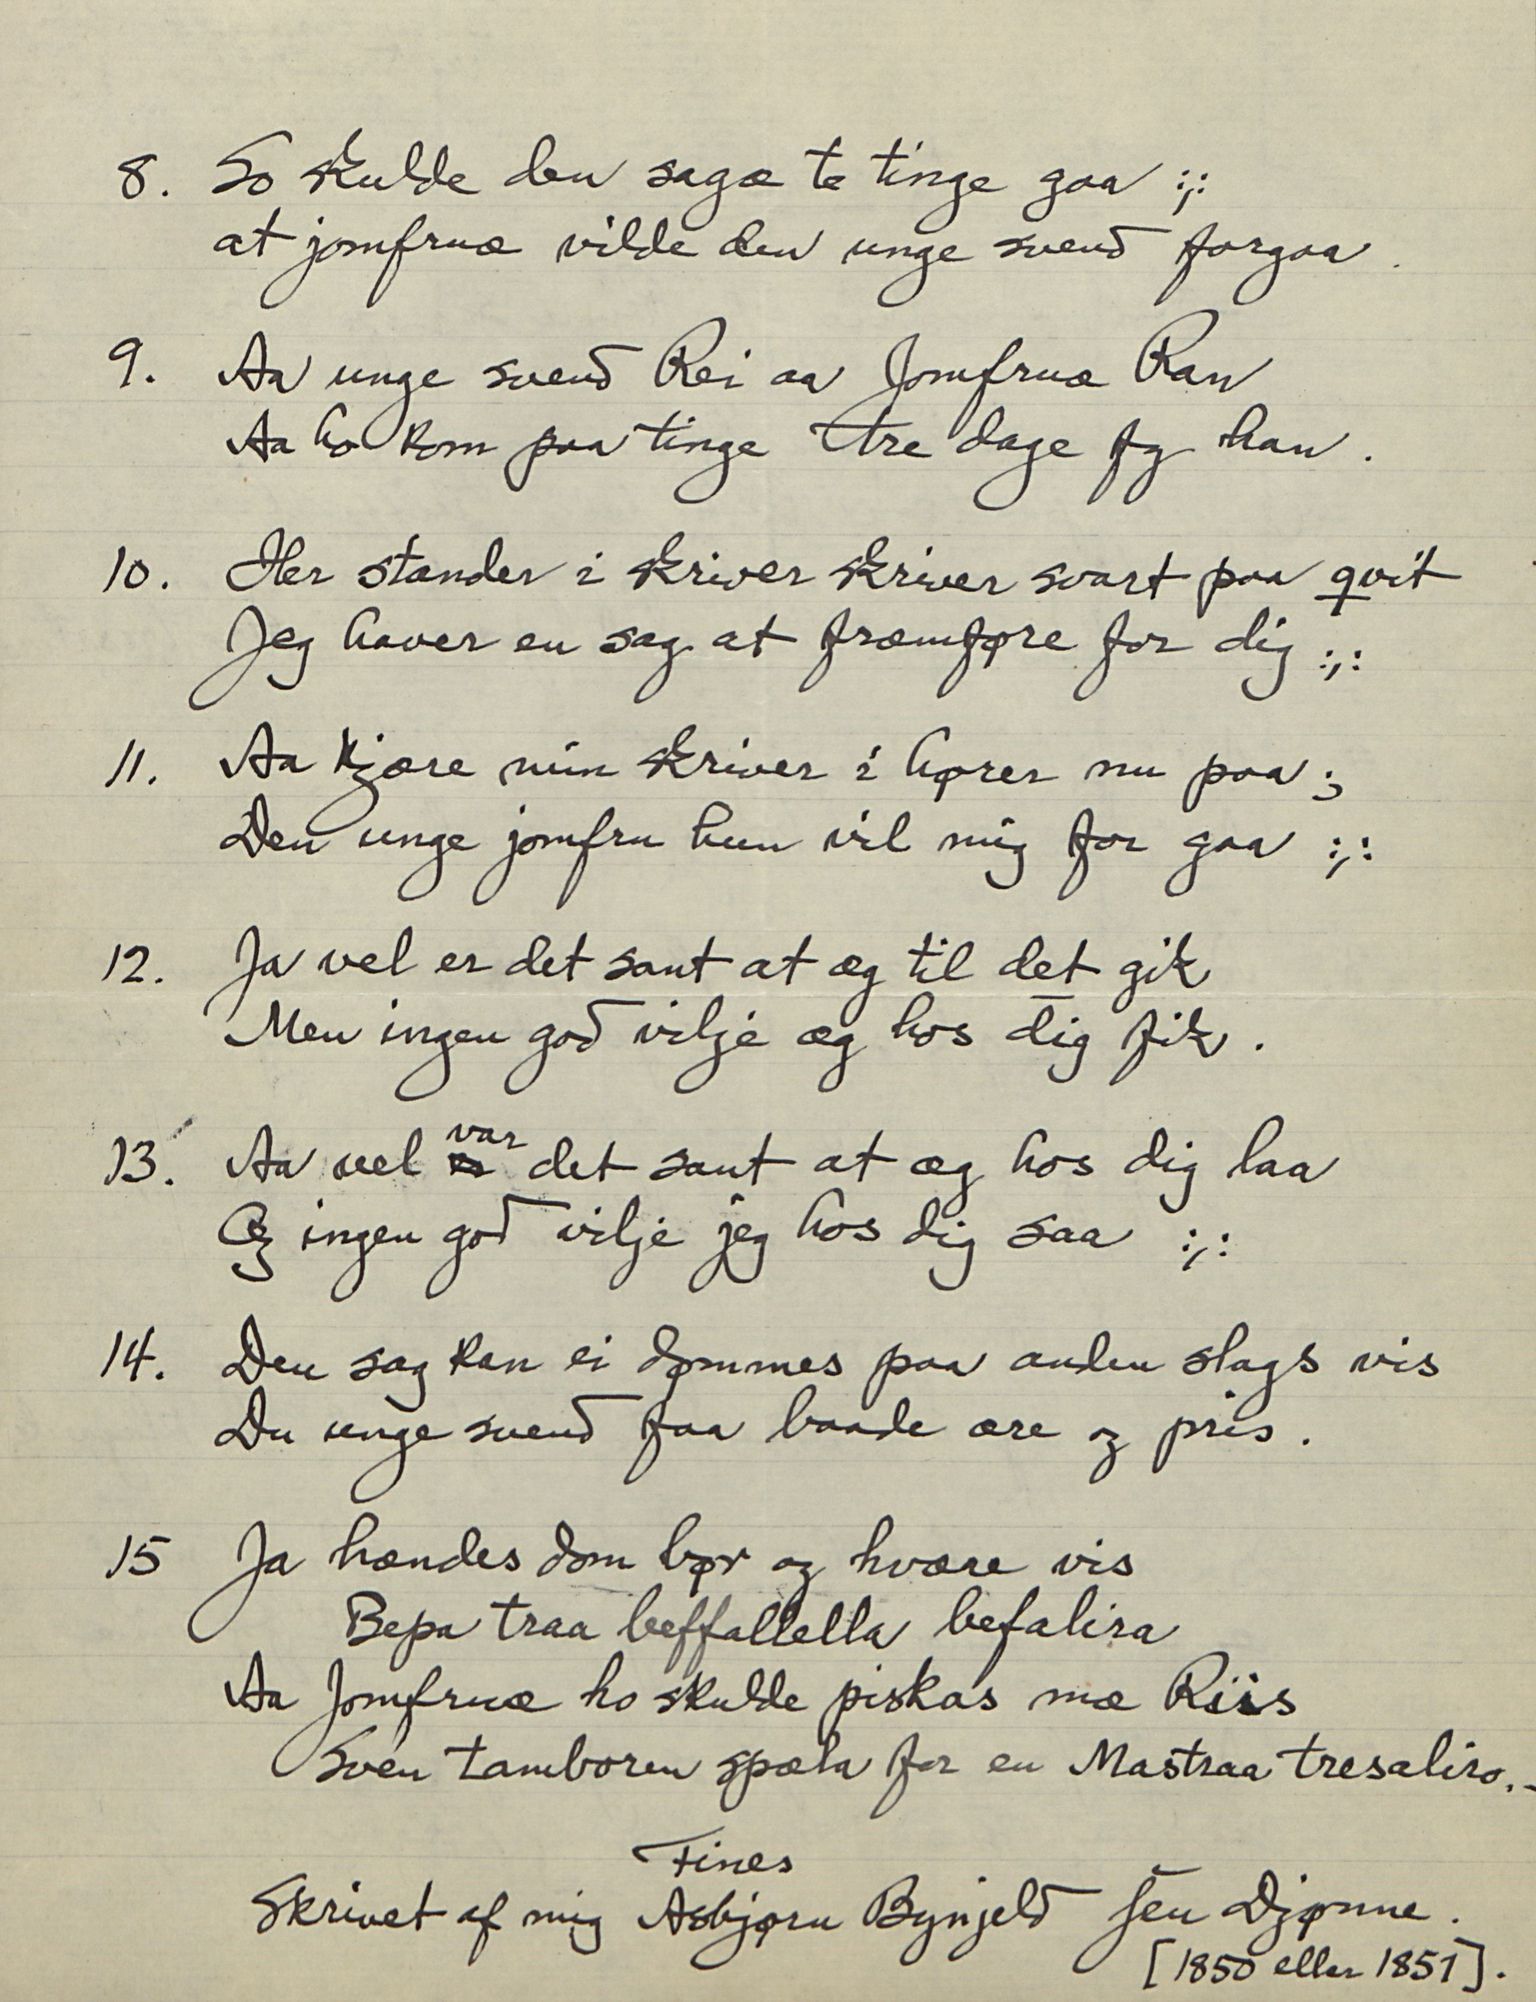 8. So skulde den sagæ te tinge gaa :,:
at jomfruæ vilde den unge svend forgaa.
9. Aa unge svend Rei aa Jomfruæ Ran
Aa ho kom paa tinge tre dage fy han.
10. Her stander i skriver skriver svart paa qvit
Jeg haver en sag at fræmføre for dig :,:
11. Aa kjære min skriver i hører nu paa ;
Den unge jomfru hun vil mig for gaa :,:
12. Ja vel er det sant at æg til det gik
Men ingen god vilje æg hos dig fik.
13. Aa vel var det sant at æg hos dig laa
Og ingen god vilje jeg hos dig saa :,:
14. Den sag kan ei dømmes paa anden slags vis
Du unge svend faa baade ære og pris.
15 Ja hændes dom bør og hvære vis
Bepa traa beffallella befalira
Aa Jomfruæ ho skulde piskas mæ Riis
Sven tamboren spæla for en Mastraa tresaliro.-
Fines
Skrivet af mig Asbjørn Bynjeld sen Djønne.
[1850 eller 1851].